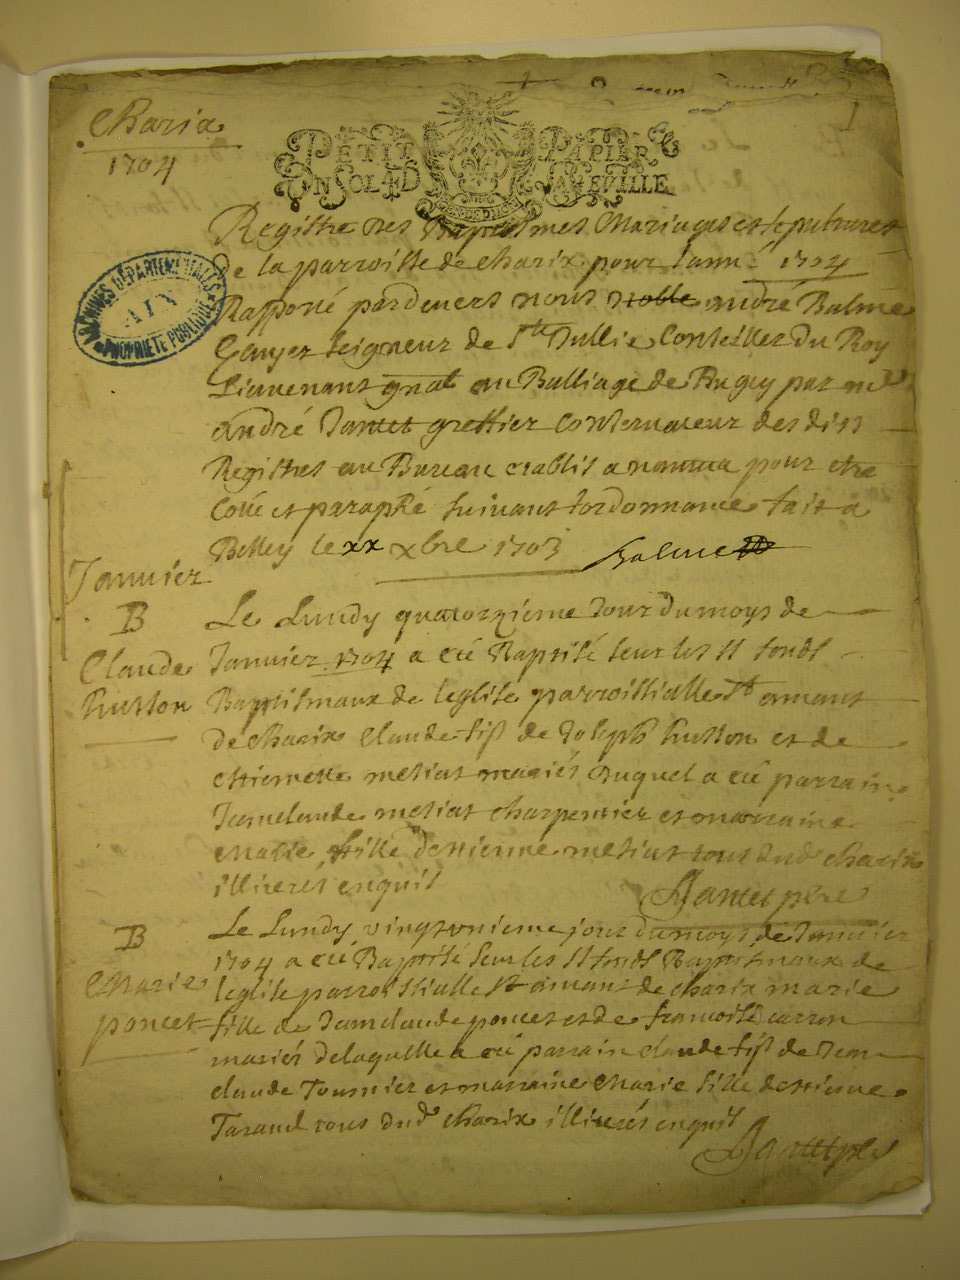 Charix
1704
1
PETIT PAPIER
UN SOL ED LA FEVILLE
ARCHIVES DÉPARTEMENTALES
AIN
PROPRIÉTÉ PUBLIQUE
Registre des Baptesmes Mariages et sepultures
de la parroisse de charix pour l'anné 1704
Rapporté pardevers nous noble andré Balme
seigneur de Ste Jullie Conseiller du Roy
Lieutenant gnal au Balliage de Bugey par me
andré Jantet greffier conservateur des dits
Registres au Bureau etablis a nantua pour etre
Cotté et paraphé suivant l'ordonnance fait a
Belley le xx xbre 1703 Balme
Janvier
B
Claude
hutton
Le Lundy quatorzieme Jour du moys de
Janvier 1704 a eté Baptisé sur les Sts fonds
Baptismaux de leglise parroissialle St amant
de charix Claude fils de Joseph hutton et de
ettiennette metiat mariés Duquel a eté parrain
Jean claude metiat charpentier et marraine
Marie fille dettienne metiat tous dud charix
illiterés enquis
Jantet pbre
B
Marie
poncet
Le Lundy vingtunieme jour du moys de Janvier
1704 a eté Baptisé sur les Sts fonds Baptismaux de
leglise parroissialle St amant de charix marie
fille de Jeanclaude poncet et de francoise carron
mariés de laquelle a eté parrain claude fils de Jean
claude Tournier et marraine Marie fille dettienne
Taravel tous dud charix illiterés enquis
Jantet pbre